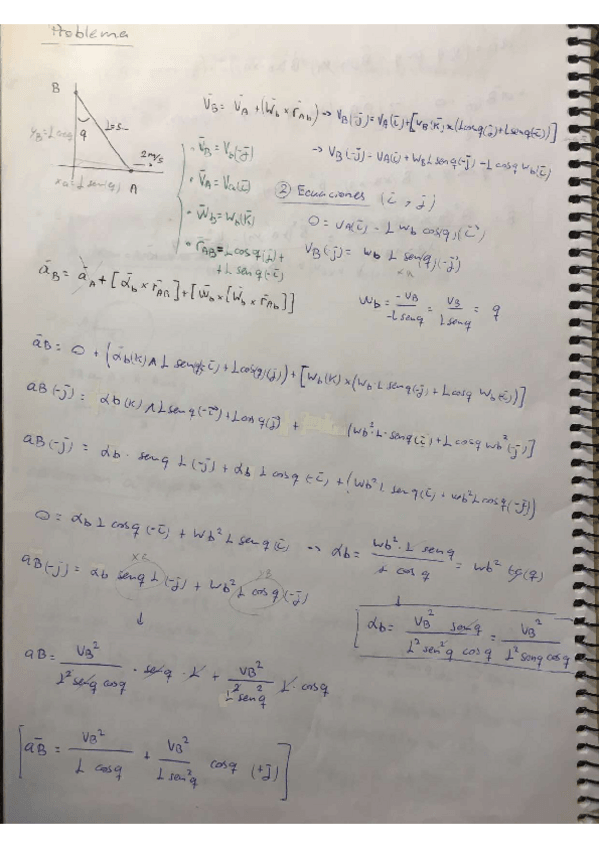 Problema
B
L=5m
y_B = L cos q
q
2 m/s
x_A = L sen(q)
A
v̄_B = v̄_A + (w̄_b × r̄_AB) → v_B(-j̄) = v_A(ī) + [w_B(k̄) × (L cosq(j̄) + L senq(ī))]
→ v_B(-j̄) = v_A(ī) + w_B L senq(-j̄) - L cosq w_b(ī)
• v̄_B = V_b(j̄)
• v̄_A = V_a(ī)
• w̄_b = w_b(k̄)
• r̄_AB = L cosq(j̄) +
+ L senq(-ī)
② Ecuaciones (ī, j̄)
0 = v_A(ī) - L w_b cos(q)(ī)
V_B(j̄) = w_b L sen(q)(-j̄)
x_A
w_b = -v_B / -L senq = v_B / L senq = q
ā_B = ā_A + [ᾱ_b × r̄_AB] + [w̄_b × [w̄_b × r̄_AB]]
ā_B = 0 + (ᾱ_b(k) ∧ L senq(-ī) + L cos(q)(j̄)) + [w_b(k) × (w_b · L senq(-j̄) + L cosq w_b(ī))]
a_B(-j̄) = α_b(k) ∧ L senq(-ī) + L cosq(j̄) + (w_b² · L · senq(ī) + L cosq w_b²(-j̄)]
a_B(-j̄) = α_b · senq L(-j̄) + α_b L cosq(-ī) + (w_b² L senq(ī) + w_b² L cosq(-j̄))
0 = α_b L cosq(-ī) + w_b² L senq(ī) → α_b = w_b² · L senq / L cosq = w_b² tg(q)
x_A y_B
a_B(-j̄) = α_b senq L(-j̄) + w_b² L cosq(-j̄)
↓ ↓
α_b = V_B² senq / L² sen²q cosq = V_B² / L² senq cosq
a_B = V_B² / L² senq cosq · senq · L + V_B² / L² sen²q L · cosq
[ā_B = V_B² / L cosq + V_B² / L sen²q cosq (+j̄)]